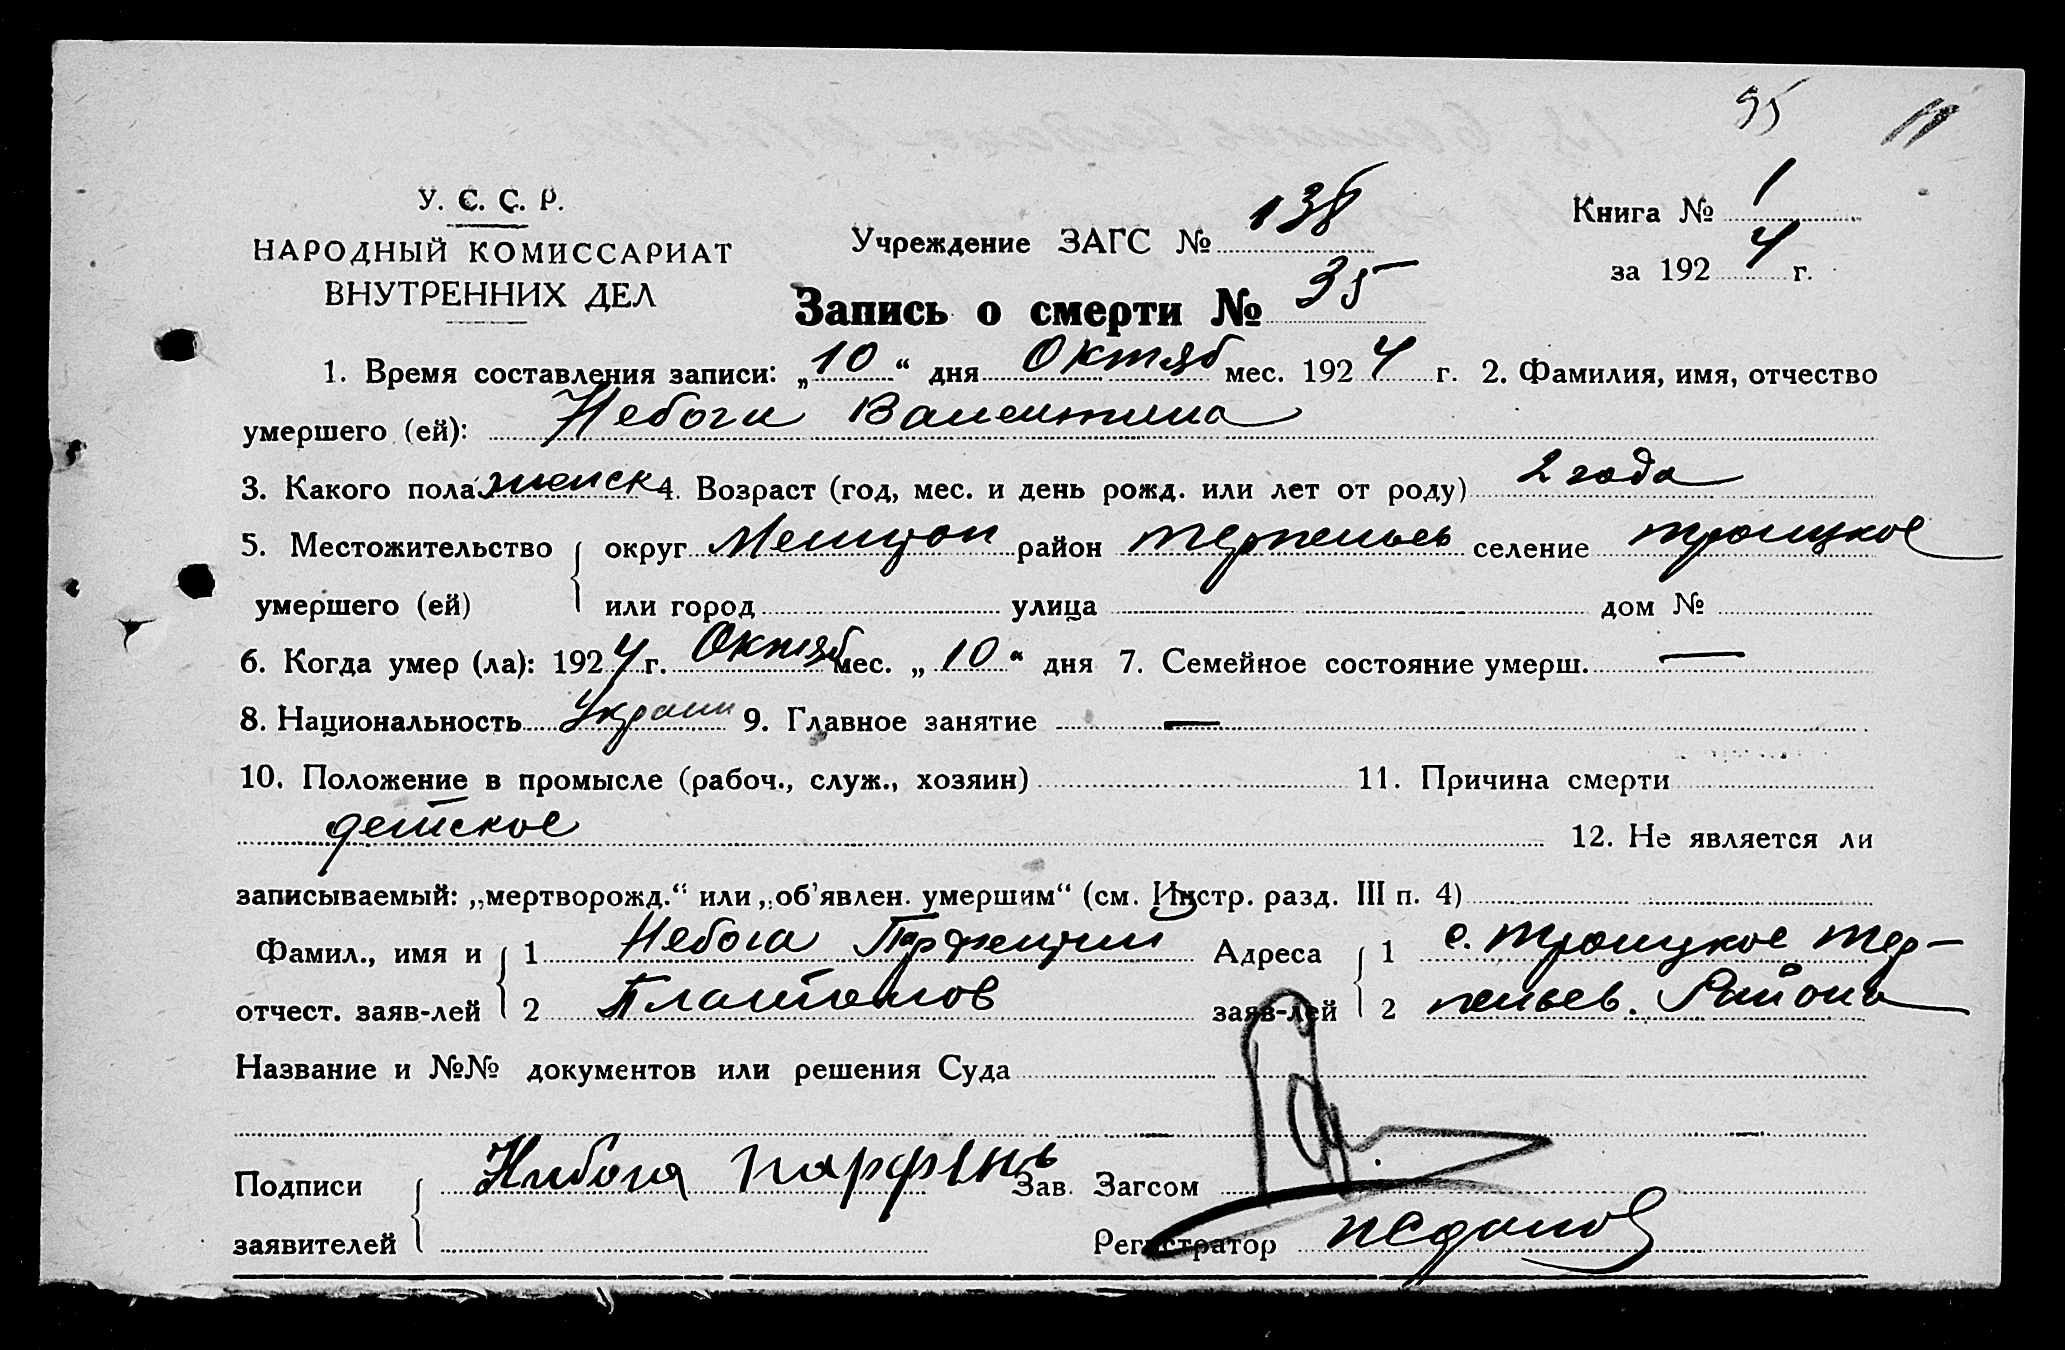 35
У. С. С. Р.
НАРОДНЫЙ КОМИССАРИАТ
ВНУТРЕННИХ ДЕЛ
Учреждение ЗАГС № 138
Книга № 1
за 1924 г.
Запись о смерти № 35
1. Время составления записи: „10“ дня Октяб мес. 1924 г. 2. Фамилия, имя, отчество
умершего (ей): Небоги Валентина
3. Какого пола женск 4. Возраст (год, мес. и день рожд. или лет от роду) 2 года
5. Местожительство округ Мелитоп район Терпеньев селение Троицкое
умершего (ей) или город улица дом №
6. Когда умер (ла): 1924 г. Октяб мес. „10“ дня 7. Семейное состояние умерш. —
8. Национальность Украин 9. Главное занятие —
10. Положение в промысле (рабоч., служ., хозяин) 11. Причина смерти
детское 12. Не является ли
записываемый: „мертворожд.“ или „об'явлен. умершим“ (см. Инстр. разд. III п. 4)
Фамил., имя и 1 Небога Адреса 1 с. Троицкое Тер-
отчест. заяв-лей 2 Платонов заяв-лей 2 пеньев. Района
Название и №№ документов или решения Суда
Подписи Нибога Парфен Зав. Загсом
заявителей Регистратор